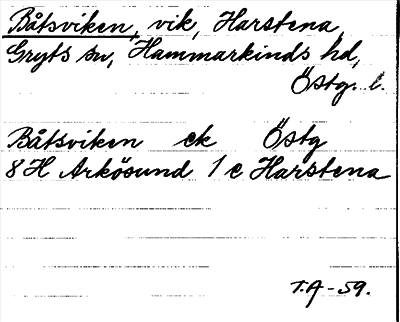 Båtsviken, vik, Harstena,
Gryts sn, Hammarkinds hd,
Östg. l.
Båtsviken ek Östg
8H Arkösund 1 c Harstena
T.A-59.